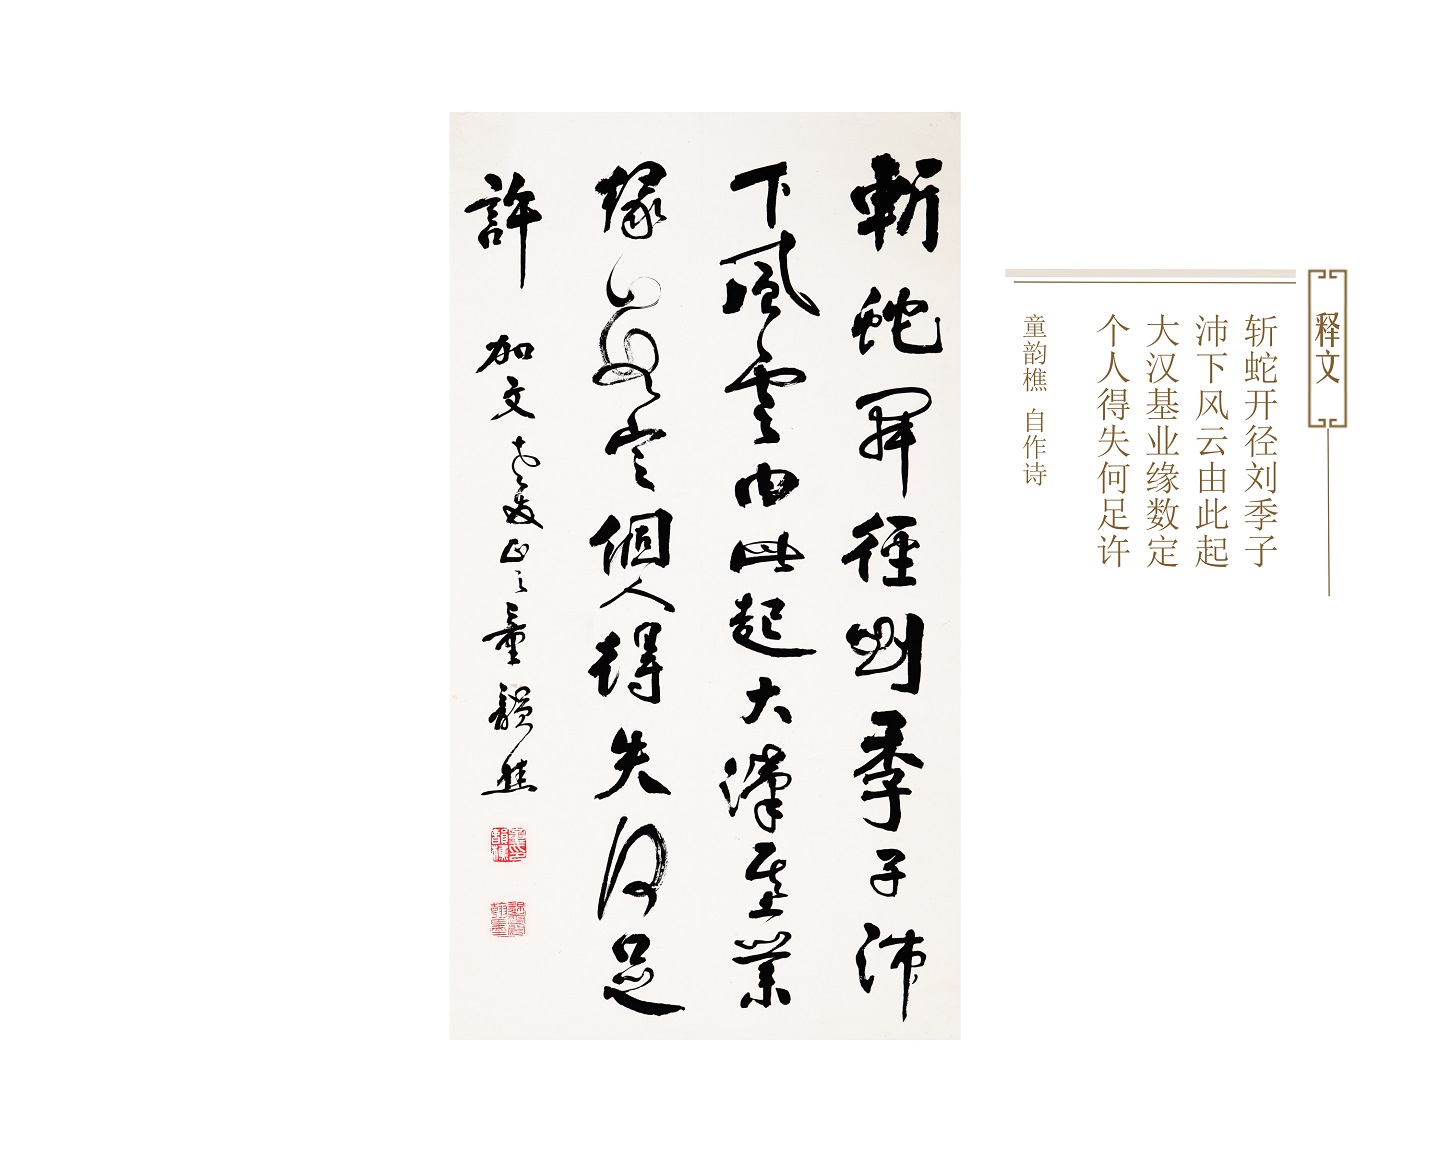 释文
斩蛇开径刘季子
沛下风云由此起
大汉基业缘数定
个人得失何足许
童韵樵 自作诗
斬蛇开徑劉季子沛
下風雲由此起大漢基業
緣數定個人得失何足
許
加文老友正之童韻樵